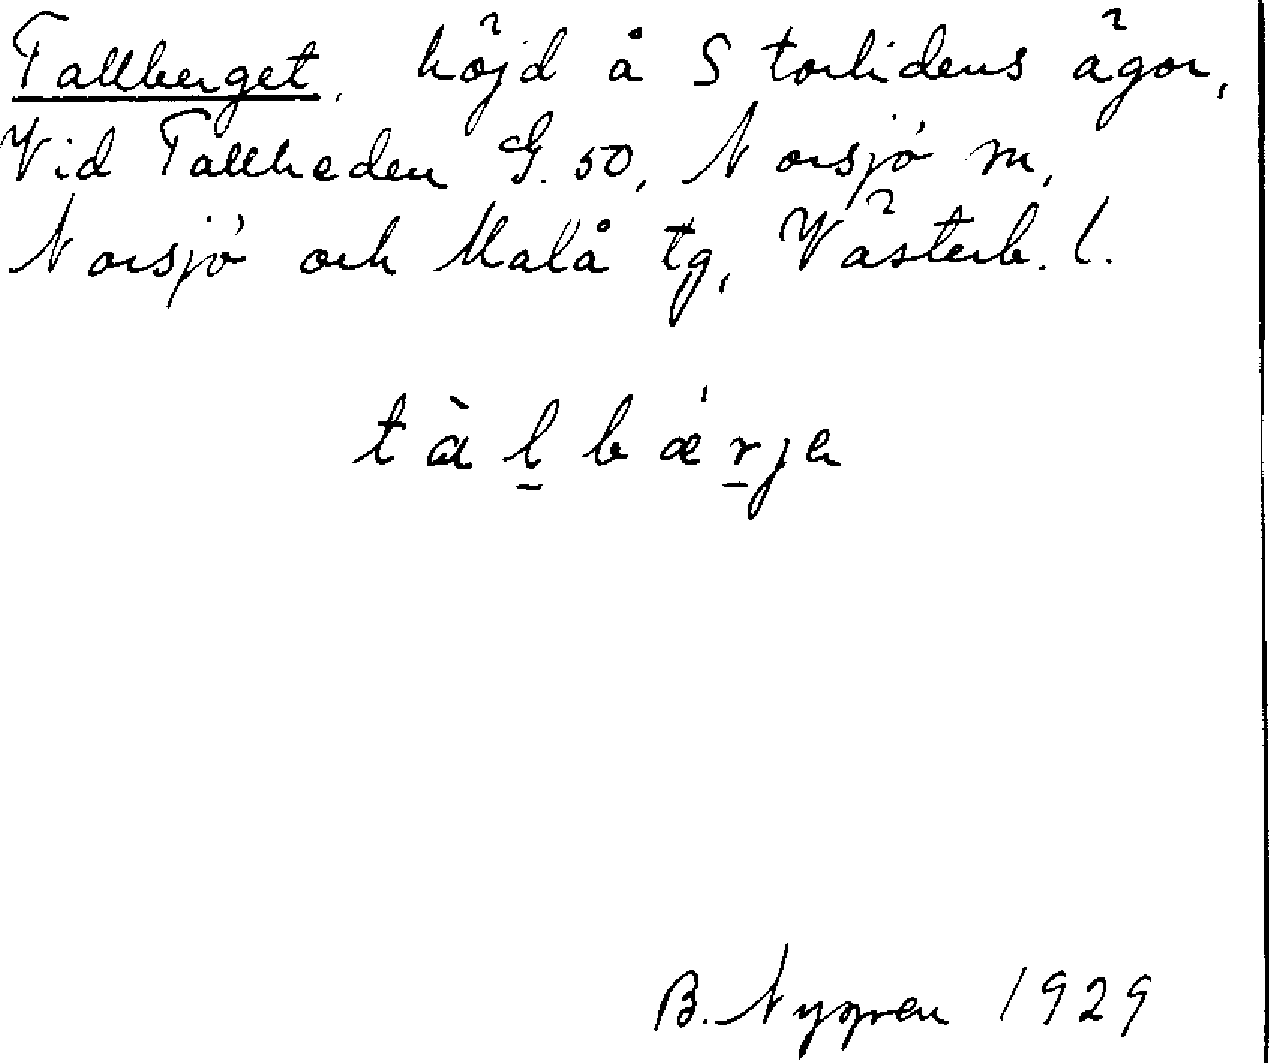 Tallberget, höjd å Storlidens ägor,
Vid Tallheden G. 50, Norsjö sn,
Norsjö och Malå tg, Västerb. l.
tàl̠bǽr̠ja
B. Nygren 1929